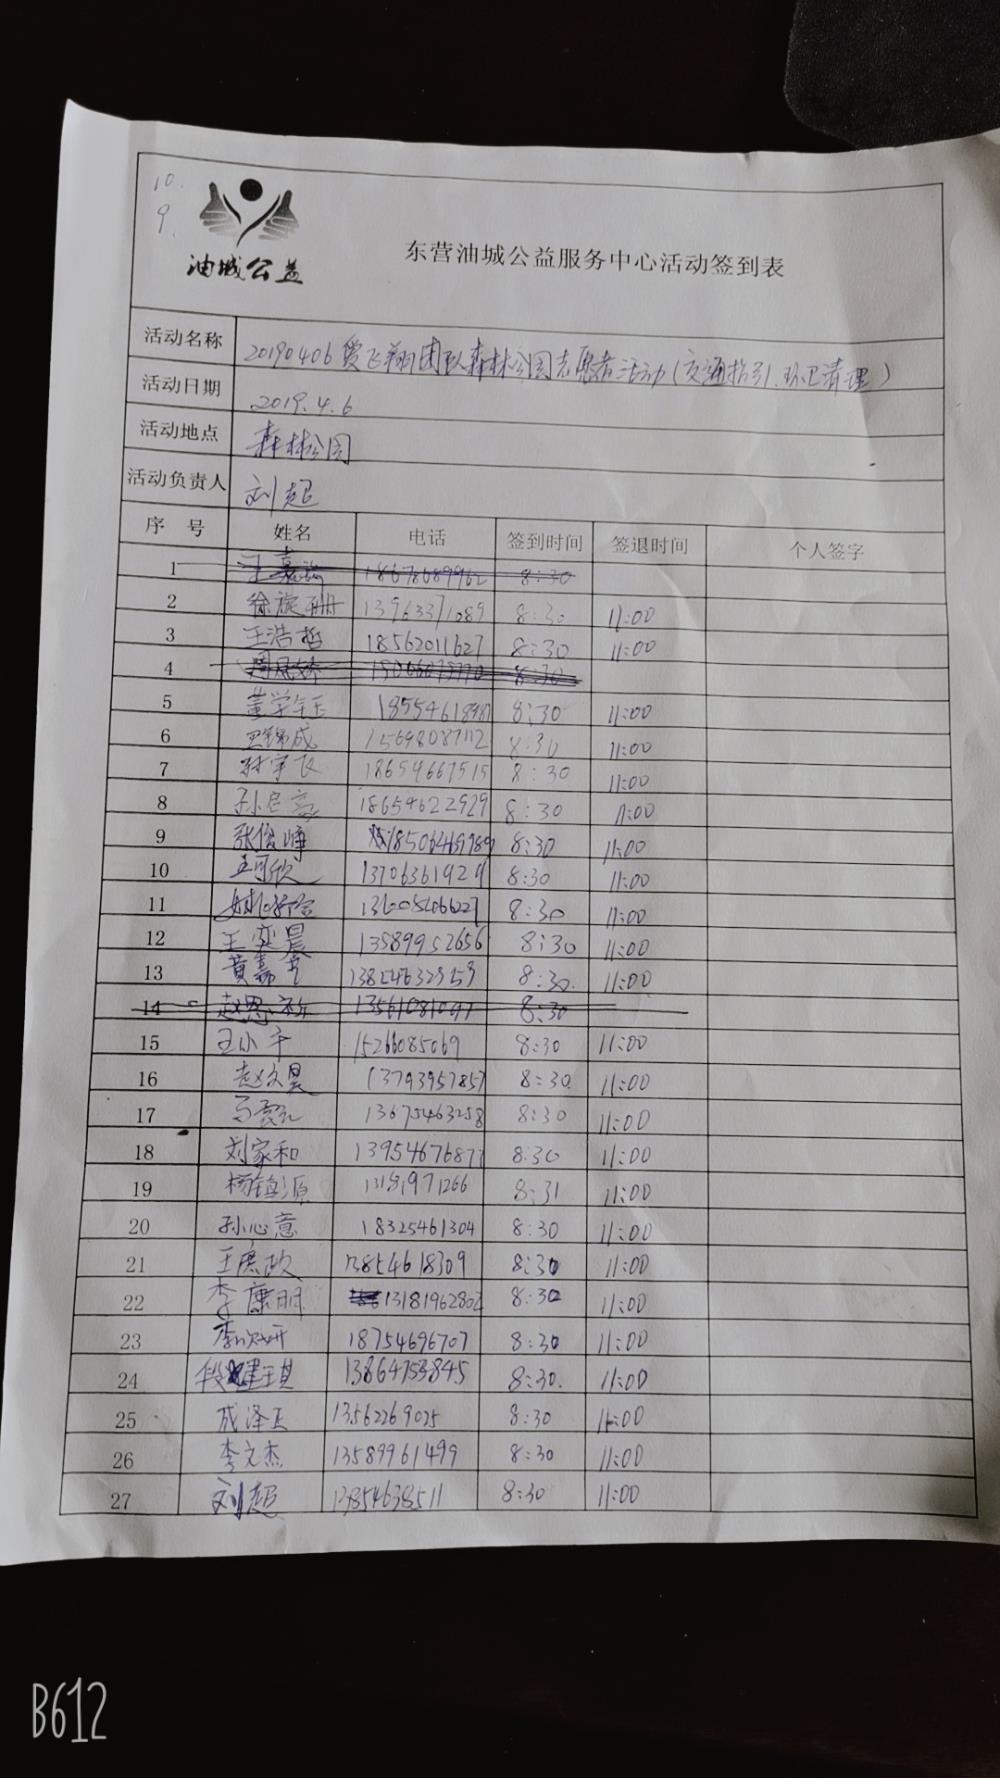 10.
9.
油城公益
东营油城公益服务中心活动签到表
活动名称 20190406 飞翔团队森林公园志愿者活动(交通指引.环卫清理)
活动日期 2019.4.6
活动地点 森林公园
活动负责人 刘超
序 号 姓名 电话 签到时间 签退时间 个人签字
1 王嘉 18678689962 8:30
2 徐旋珊 13963371089 8:30 11:00
3 王浩哲 18562011627 8:30 11:00
4 8:30
5 董学钰 18554618987 8:30 11:00
6 成 15698087112 8:30 11:00
7 18654667515 8:30 11:00
8 孙 18654622929 8:30 11:00
9 张俊峰 8:30 11:00
10 孟可欣 13706361929 8:30 11:00
11 8:30 11:00
12 王奕晨 13589952656 8:30 11:00
13 黄嘉 8:30. 11:00
14 赵恩 13561081097 8:30
15 王小千 15266085069 8:30 11:00
16 赵文昊 13793957857 8:30. 11:00
17 13675463258 8:30 11:00
18 刘家和 13954676877 8:30 11:00
19 杨镇源 8:31 11:00
20 孙心意 18325461304 8:30 11:00
21 王彦政 13854618309 8:30 11:00
22 李康明 13181962802 8:30 11:00
23 李妍 18754696707 8:30 11:00
24 段琪 8:30. 11:00
25 成泽正 13562269025 8:30 11:00
26 李文杰 13589961499 8:30 11:00
27 刘超 13854638511 8:30 11:00
B612